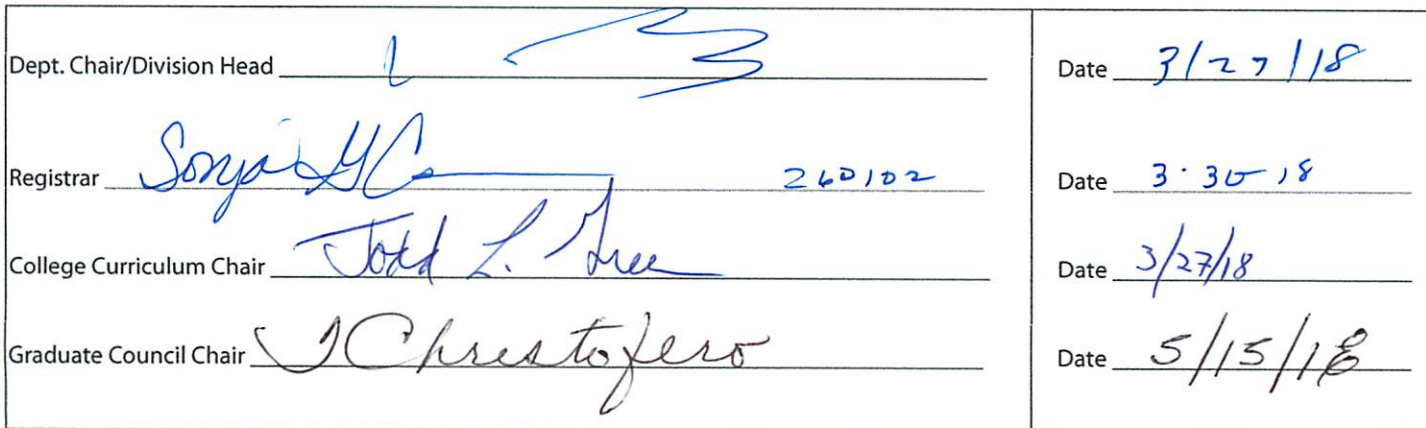 Dept. Chair/Division Head Date 3/27/18
Registrar Sonja G 260102 Date 3·30-18
College Curriculum Chair Todd L. Green Date 3/27/18
Graduate Council Chair T Christofero Date 5/15/18